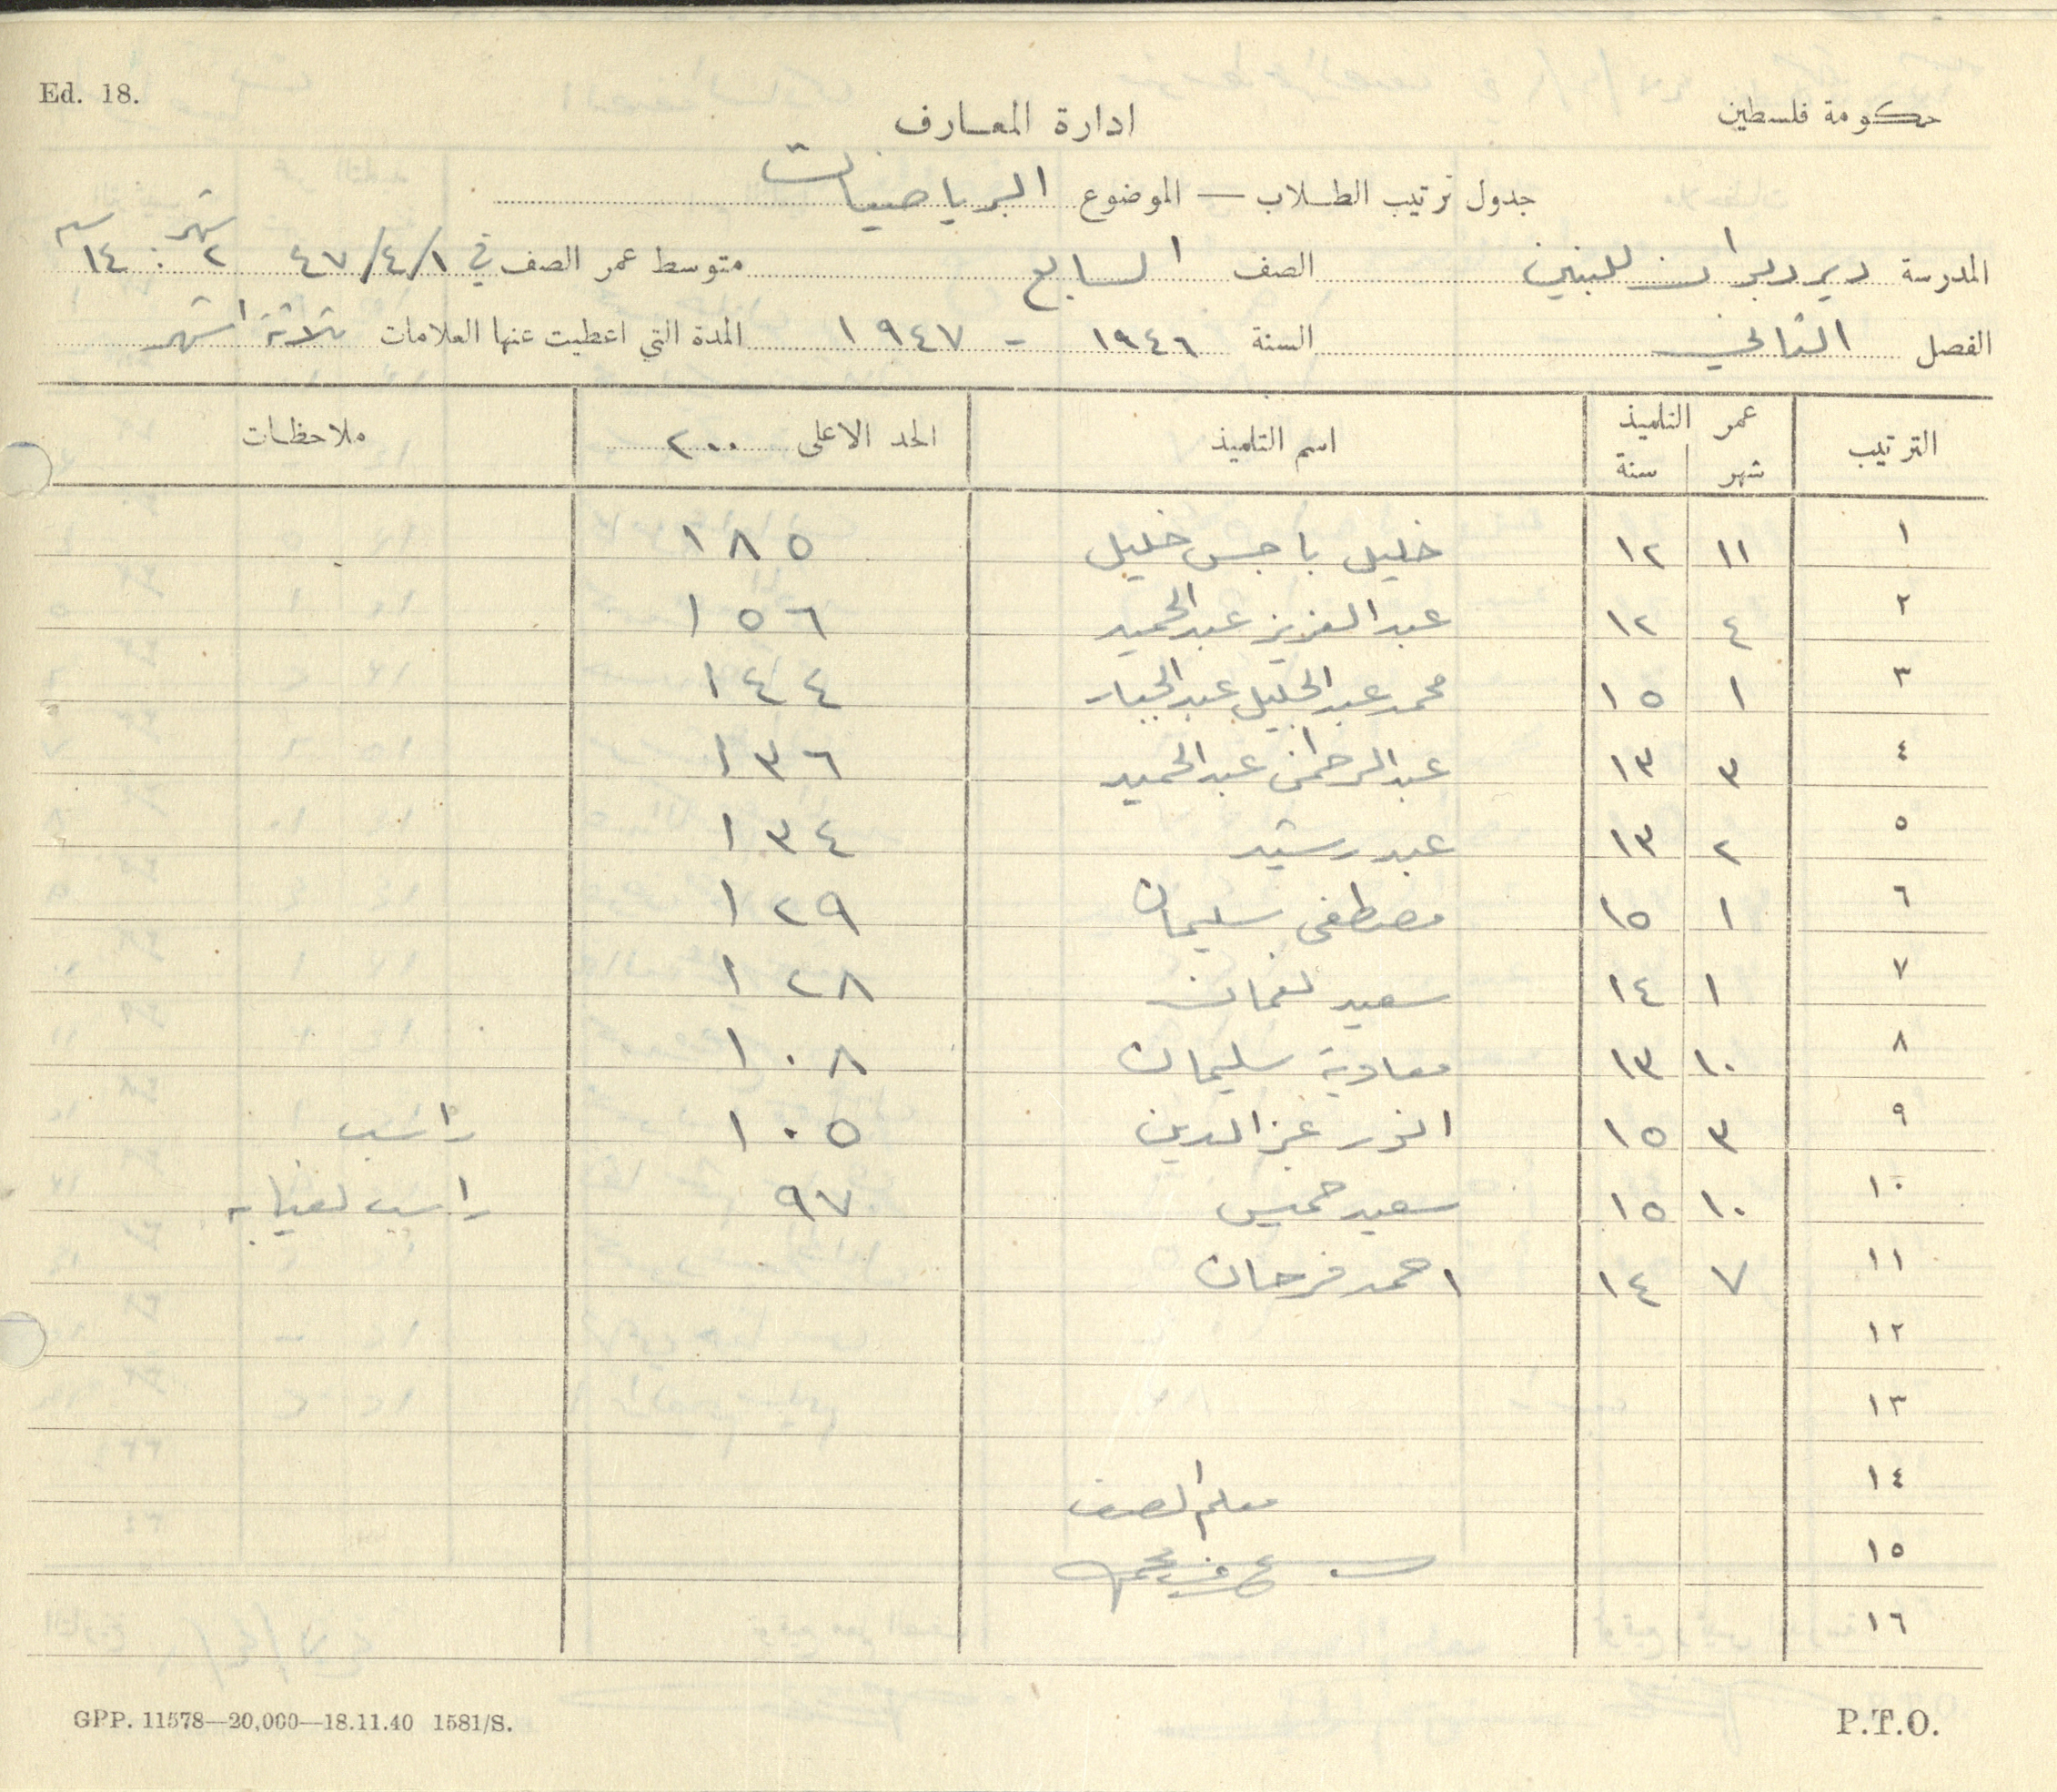 Ed. 18.
حكومة فلسطين
ادارة المعارف
جدول ترتيب الطلاب — الموضوع الرياضيات
المدرسة دير دبوان للبنين الصف السابع متوسط عمر الصف في ٤٧/٤/١ شهر ٢ سنه ١٤
الفصل الثاني السنة ١٩٤٦ - ١٩٤٧ المدة التي اعطيت عنها العلامات ثلاثة اشهر
الترتيب عمر التلميذ شهر سنة اسم التلميذ الحد الاعلى ٢٠٠ ملاحظات
١ ١١ ١٢ خليل باجس خليل ١٨٥
٢ ٤ ١٢ عبد العزيز عبد الحميد ١٥٦
٣ ١ ١٥ محمد عبد الجليل عبد الجبار ١٤٤
٤ ٣ ١٣ عبد الرحمن عبد الحميد ١٣٦
٥ ٢ ١٣ عبد رشيد ١٣٤
٦ ١ ١٥ مصطفى سليمان ١٢٩
٧ ١ ١٤ سعيد نعمان ١٢٨
٨ ١٠ ١٣ معاوية سليمان ١٠٨
٩ ٣ ١٥ انور عز الدين ١٠٥ راسب
١٠ ١٠ ١٥ سعيد خميس ٩٧ راسب لغيابه
١١ ٧ ١٤ احمد فرحان
١٢
١٣
١٤ معلم الصف
١٥
١٦
GPP. 11578—20,000—18.11.40 1581/S.
P.T.O.